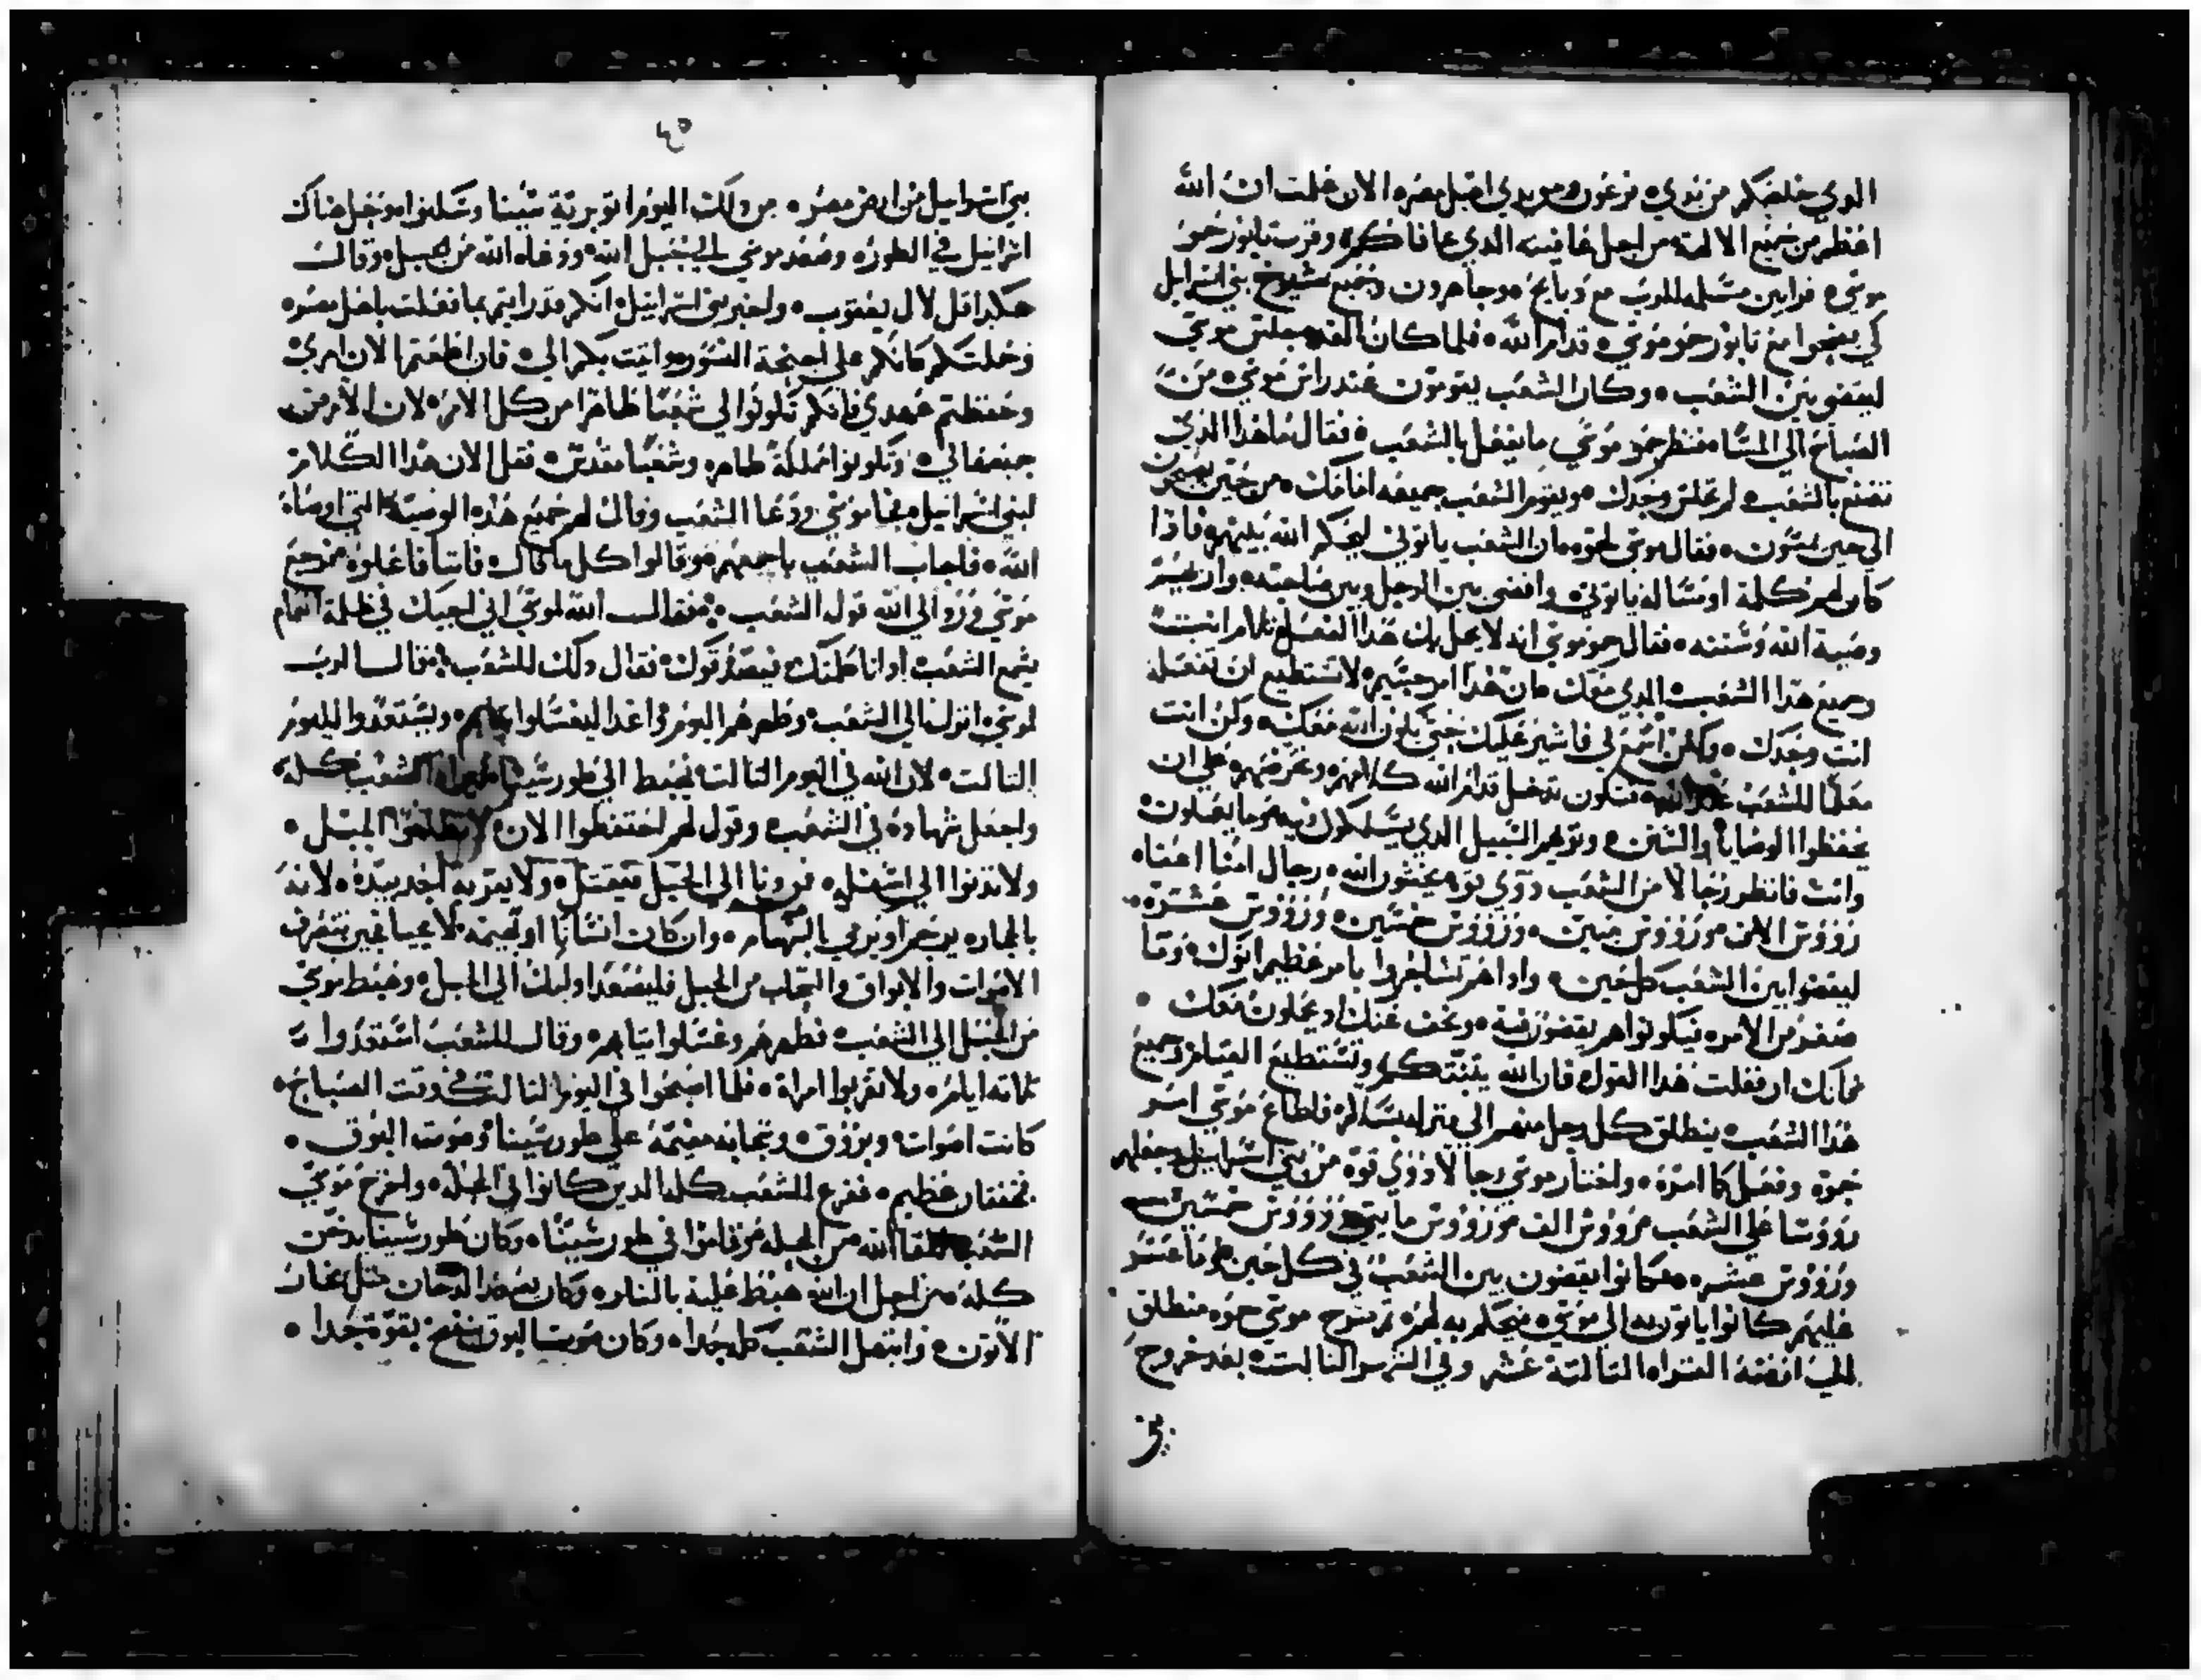 الدي خلصكم من يدي فرعون ومن يدي اهل مصر الان علمت ان الله
اعظم من جميع الالهة من اجل عافيته الذي عافاكم وقرب يايور حمو
موسي قرابين مسلمه للرب مع دبايح وجا هرون وجميع شيوخ بني اسرايل
كي يفصحوا مع يايور حمو موسي قدام الله فلما كان الغد جلس موسي
ليقضي بين الشعب وكان الشعب يقومون عند راس موسي من
الصباح الي المسا فنظر حمو موسي ما يفعل بالشعب فقال ما هدا الذي
تصنع بالشعب لم تجلس وحدك ويقوم الشعب جميعه امامك من حين يصبحون
الي حين يمسون فقال موسي لحموه ان الشعب ياتوني ليحكم الله بينهم فاذا
كان لهم كلمة او مساله ياتوني واقضي بين الرجل وبين صاحبه وان
وصية الله وسننه فقال حمو موسي انه لا يحل لك هدا الفعل انت
وجميع هدا الشعب الدي معك فان هدا امر جسيم لا تستطيع ان تفعله
انت وحدك ولكن اسمع لي فاشير عليك حتي يكون الله معك وكن انت
معلما للشعب عند الله فتكون تدخل قدام الله كلامهم وتعرفهم علي ان
يحفظوا الوصايا والسنن وتريهم السبيل الدي يسلكون فيه وما يعملون
وانت فانظر رجالا من الشعب دوي قوه يخشون الله رجال امنا اعفاء
رووس الاف ورووس ميين ورووس خمسين ورووس عشرة
ليقضوا بين الشعب كل حين واداهم تشاجروا بامر عظيم اتوك وما
صغر من الامر فيكونوا هم يقضون فيه ويخف عنك ويحملون معك
فانك ان فعلت هدا القول فان الله يثبتكم وتستطيع القيام وجميع
هدا الشعب ينطلق كل رجل منهم الي منزله بسلام فاطاع موسي امر
حموه وفعل كما امره واختار موسي رجالا دوي قوه من بني اسرايل وجعلهم
رووسا علي الشعب رووس الف ورووس مايه ورووس خمسين
ورووس عشره وكانوا يقضون بين الشعب في كل حين وما عسر
عليهم كانوا ياتون به الي موسي فيحكم به لهم ثم سرح موسي حموه فانطلق
الي ارضه القراه التالتة عشر وفي الشهر التالت بعد خروج
بني
٤٥
بني اسراييل من ارض مصر من دلك اليوم اتو برية سينا ونزلوا وحل هناك
اسراييل في الطور وصعد موسي الي جبل الله ودعاه الله من الجبل وقال
هكدا قل لال يعقوب واخبر بني اسراييل انكم قد رايتم بما فعلت باهل مصر
وحملتكم كانكم علي اجنحة النسور واتيت بكم الي فان اطعتم الان امري
وحفظتم عهدي فانكم تكونوا لي شعبا طاهرا من كل الامم لان الارض
جميعها لي وتكونوا مملكة طاهره وشعبا مقدس فقل الان هدا الكلام
لبني اسراييل فجا موسي ودعا الشعب وقال لهم جميع هده الوصية التي اوصاه
الله فاجاب الشعب باجمعهم وقالوا كل ما قال فاننا فاعلوه فرجع
موسي ورد الي الله قول الشعب فقال الله لموسي اني اجيك في ظلمة الغمام
يسمع الشعب ادا انا كلمتك فيصدقوك فقال دلك للشعب فقال الرب
لموسي انزل الي الشعب وطهرهم اليوم وغدا ليغسلوا ثيابهم ويستعدوا لليوم
التالت لان الله في اليوم التالت يهبط الي طور سينا الشعب كله
واجعل شهاده في الشعب وقول لهم احتفظوا الان لا تطلعوا الجبل
ولا تدنوا الي اسفله فمن دنا الي الجبل فيقتل ولا يقربه احد بيده لانه
بالحجاره يرجم او يرمي بالسهام وان كان انسانا او بهيمه لا يحيا فحين تنصرف
الاصوات والابواق والسحاب من الجبل فليصعد اوليك الي الجبل وهبط موسي
من الجبل الي الشعب فطهرهم وغسلوا ثيابهم وقال للشعب استعدوا
تلاته ايام ولا تقربوا امراة فلما اصبحوا في اليوم التالت وقت الصباح
كانت اصوات وبروق وسحابه مغيمة علي طور سينا وصوت البوق
يخفقان عظيم ففزع الشعب كله الدين كانوا في المحله واخرج موسي
الشعب تلقا الله من المحله وقاموا في طور سينا وكان طور سينا يدخن
كله من اجل ان الله هبط عليه بالنار وكان يصعد الدخان مثل بخار
الاتون وانتهل الشعب كله جدا وكان صوت البوق ينفخ بقوة جدا